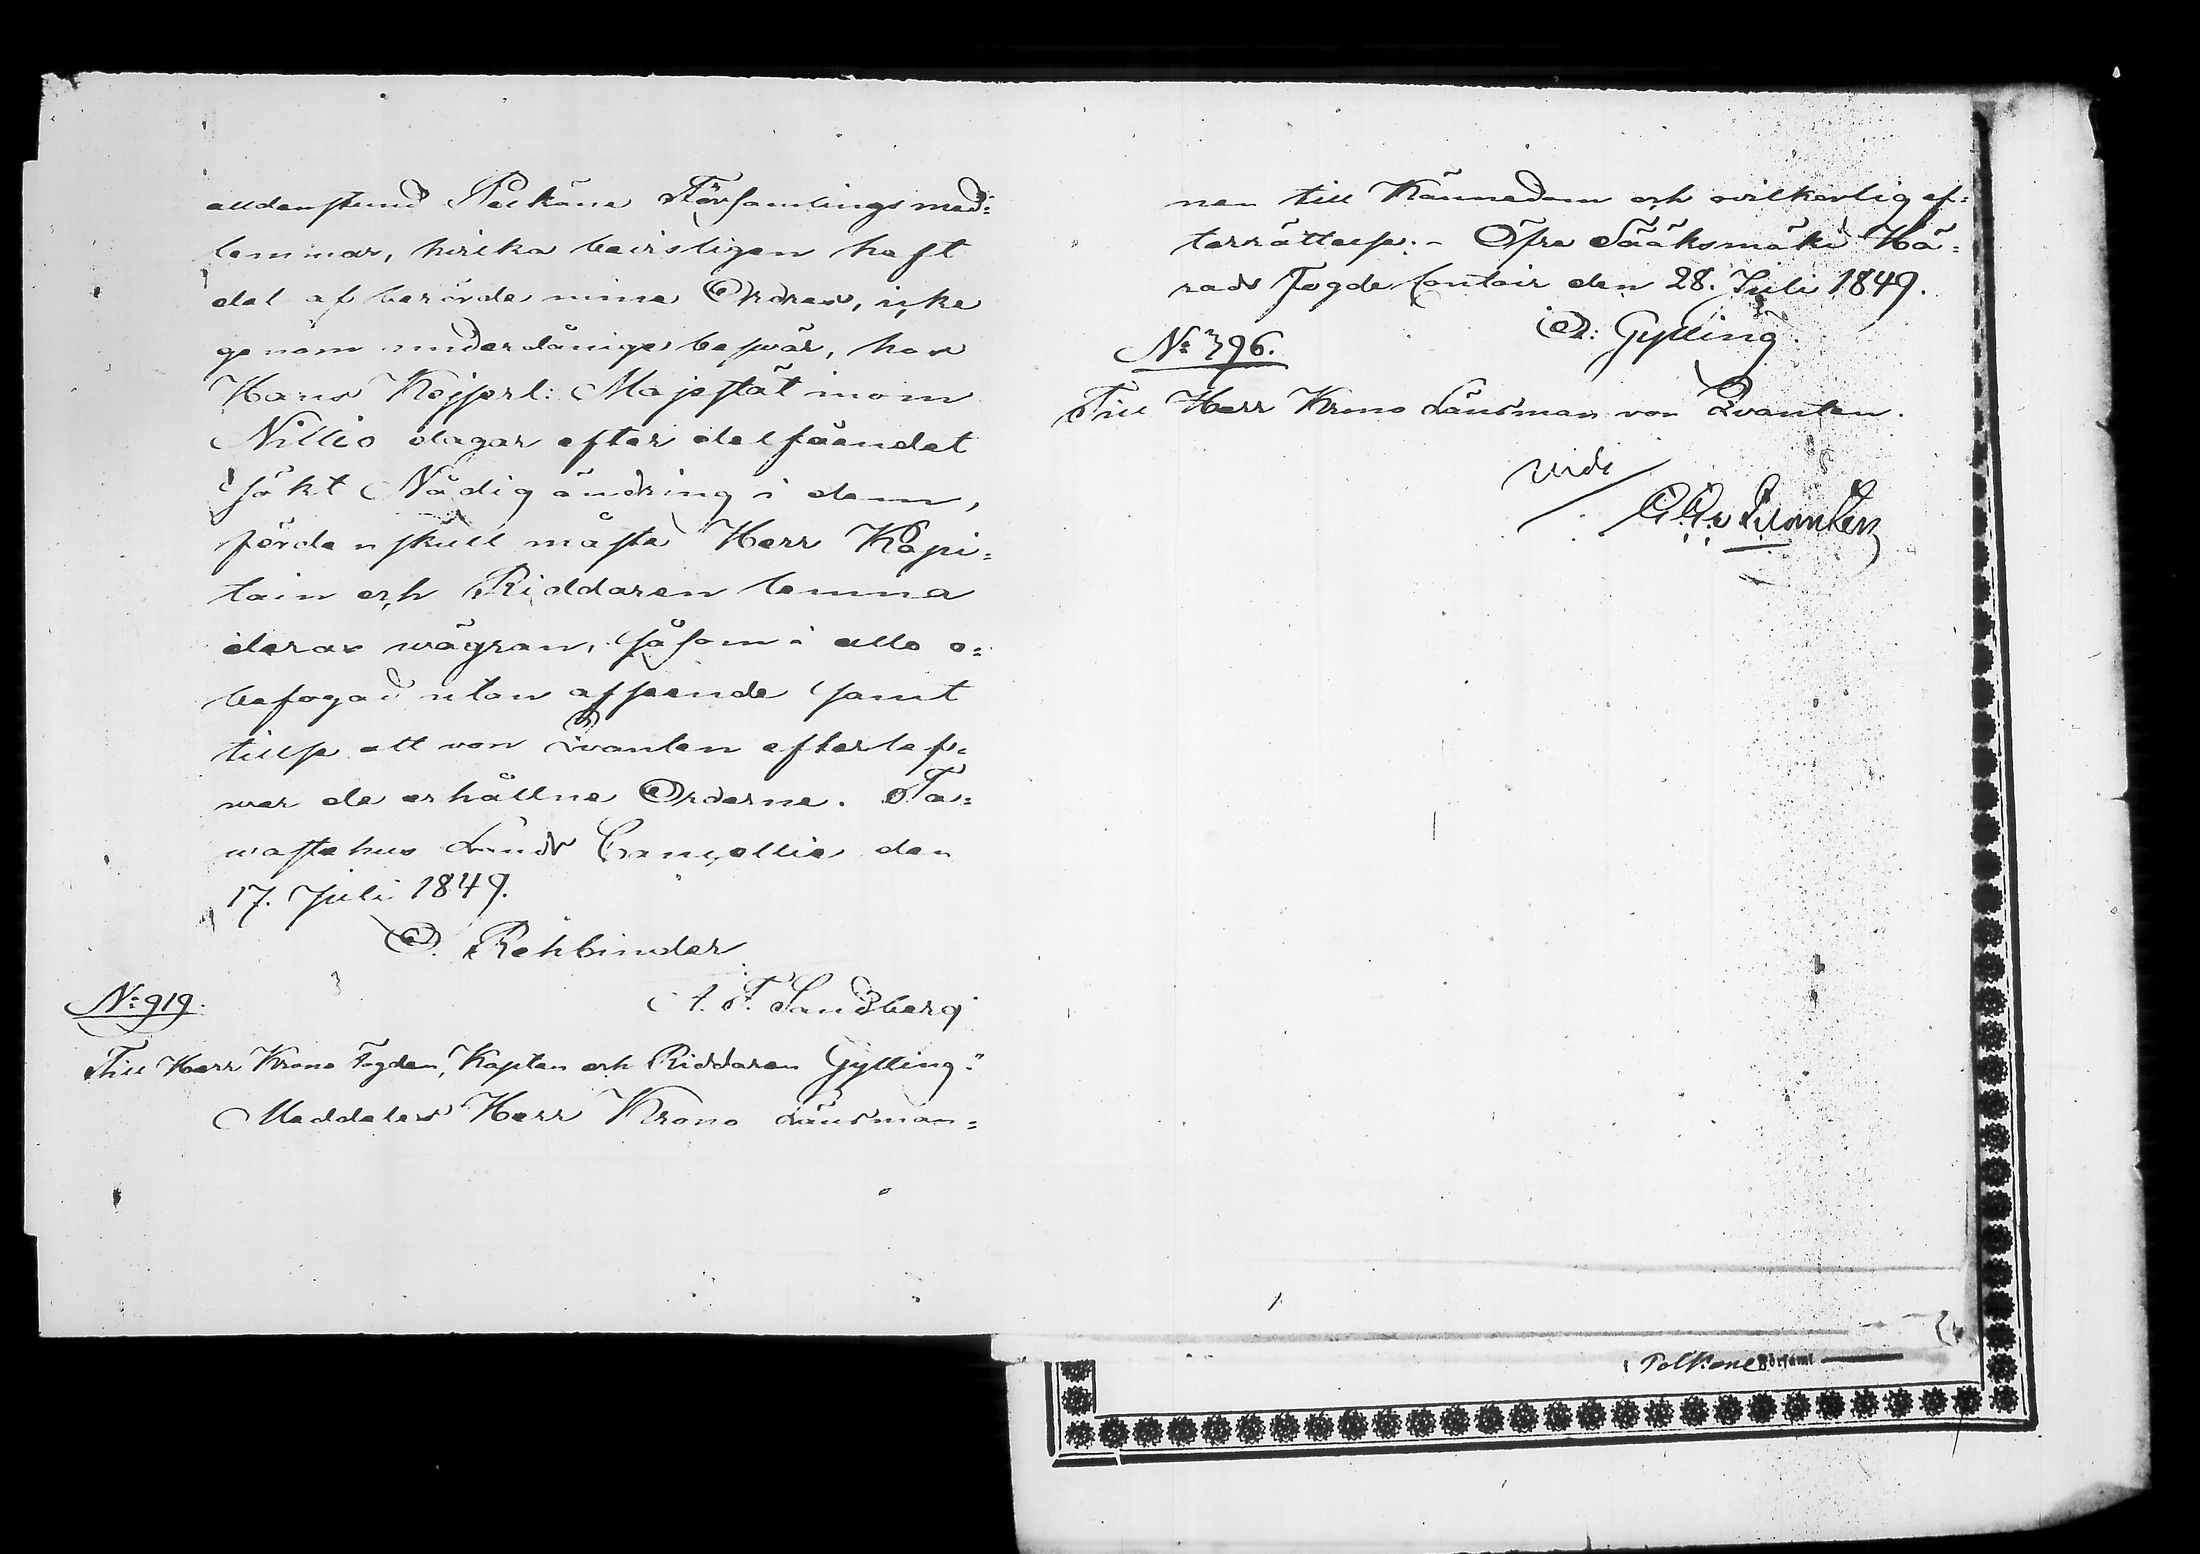 alldenstund Pelkäne Församlings med=
lemmar, hvilka bevisligen haft
del af berörde mina Ordres, icke
genom underdåniga besvär, hos
Hans Kejserl: Majestät inom
Nittio dagar efter delfåendet
sökt Nådig ändring i dem,
fördenskull måste Herr Kapi=
tain och Riddaren lemna
deras wägran, såsom i allo o=
befogad utan afseende samt
tillse att von Qvanten efterlef=
wer de erhållne Orderne. Ta=
wastehus Lands Cancellie den
17. Juli 1849.
O. Rehbinder
A. F. Sandberg
No 919.
Till Herr Krono Fogden, Kapten och Riddaren Gylling."
Meddelas Herr Krono Länsman=
nen till Kännedom och ovilkorlig ef=
terrättelse.- Öfre Sääksmäki Hä=
rads Fogde Contoir den 28. Juli 1849.
O: Gylling.
No 396.
Till Herr Krono Länsman von Qvanten.
vidi
Qvanten
i Pelkäne Församl